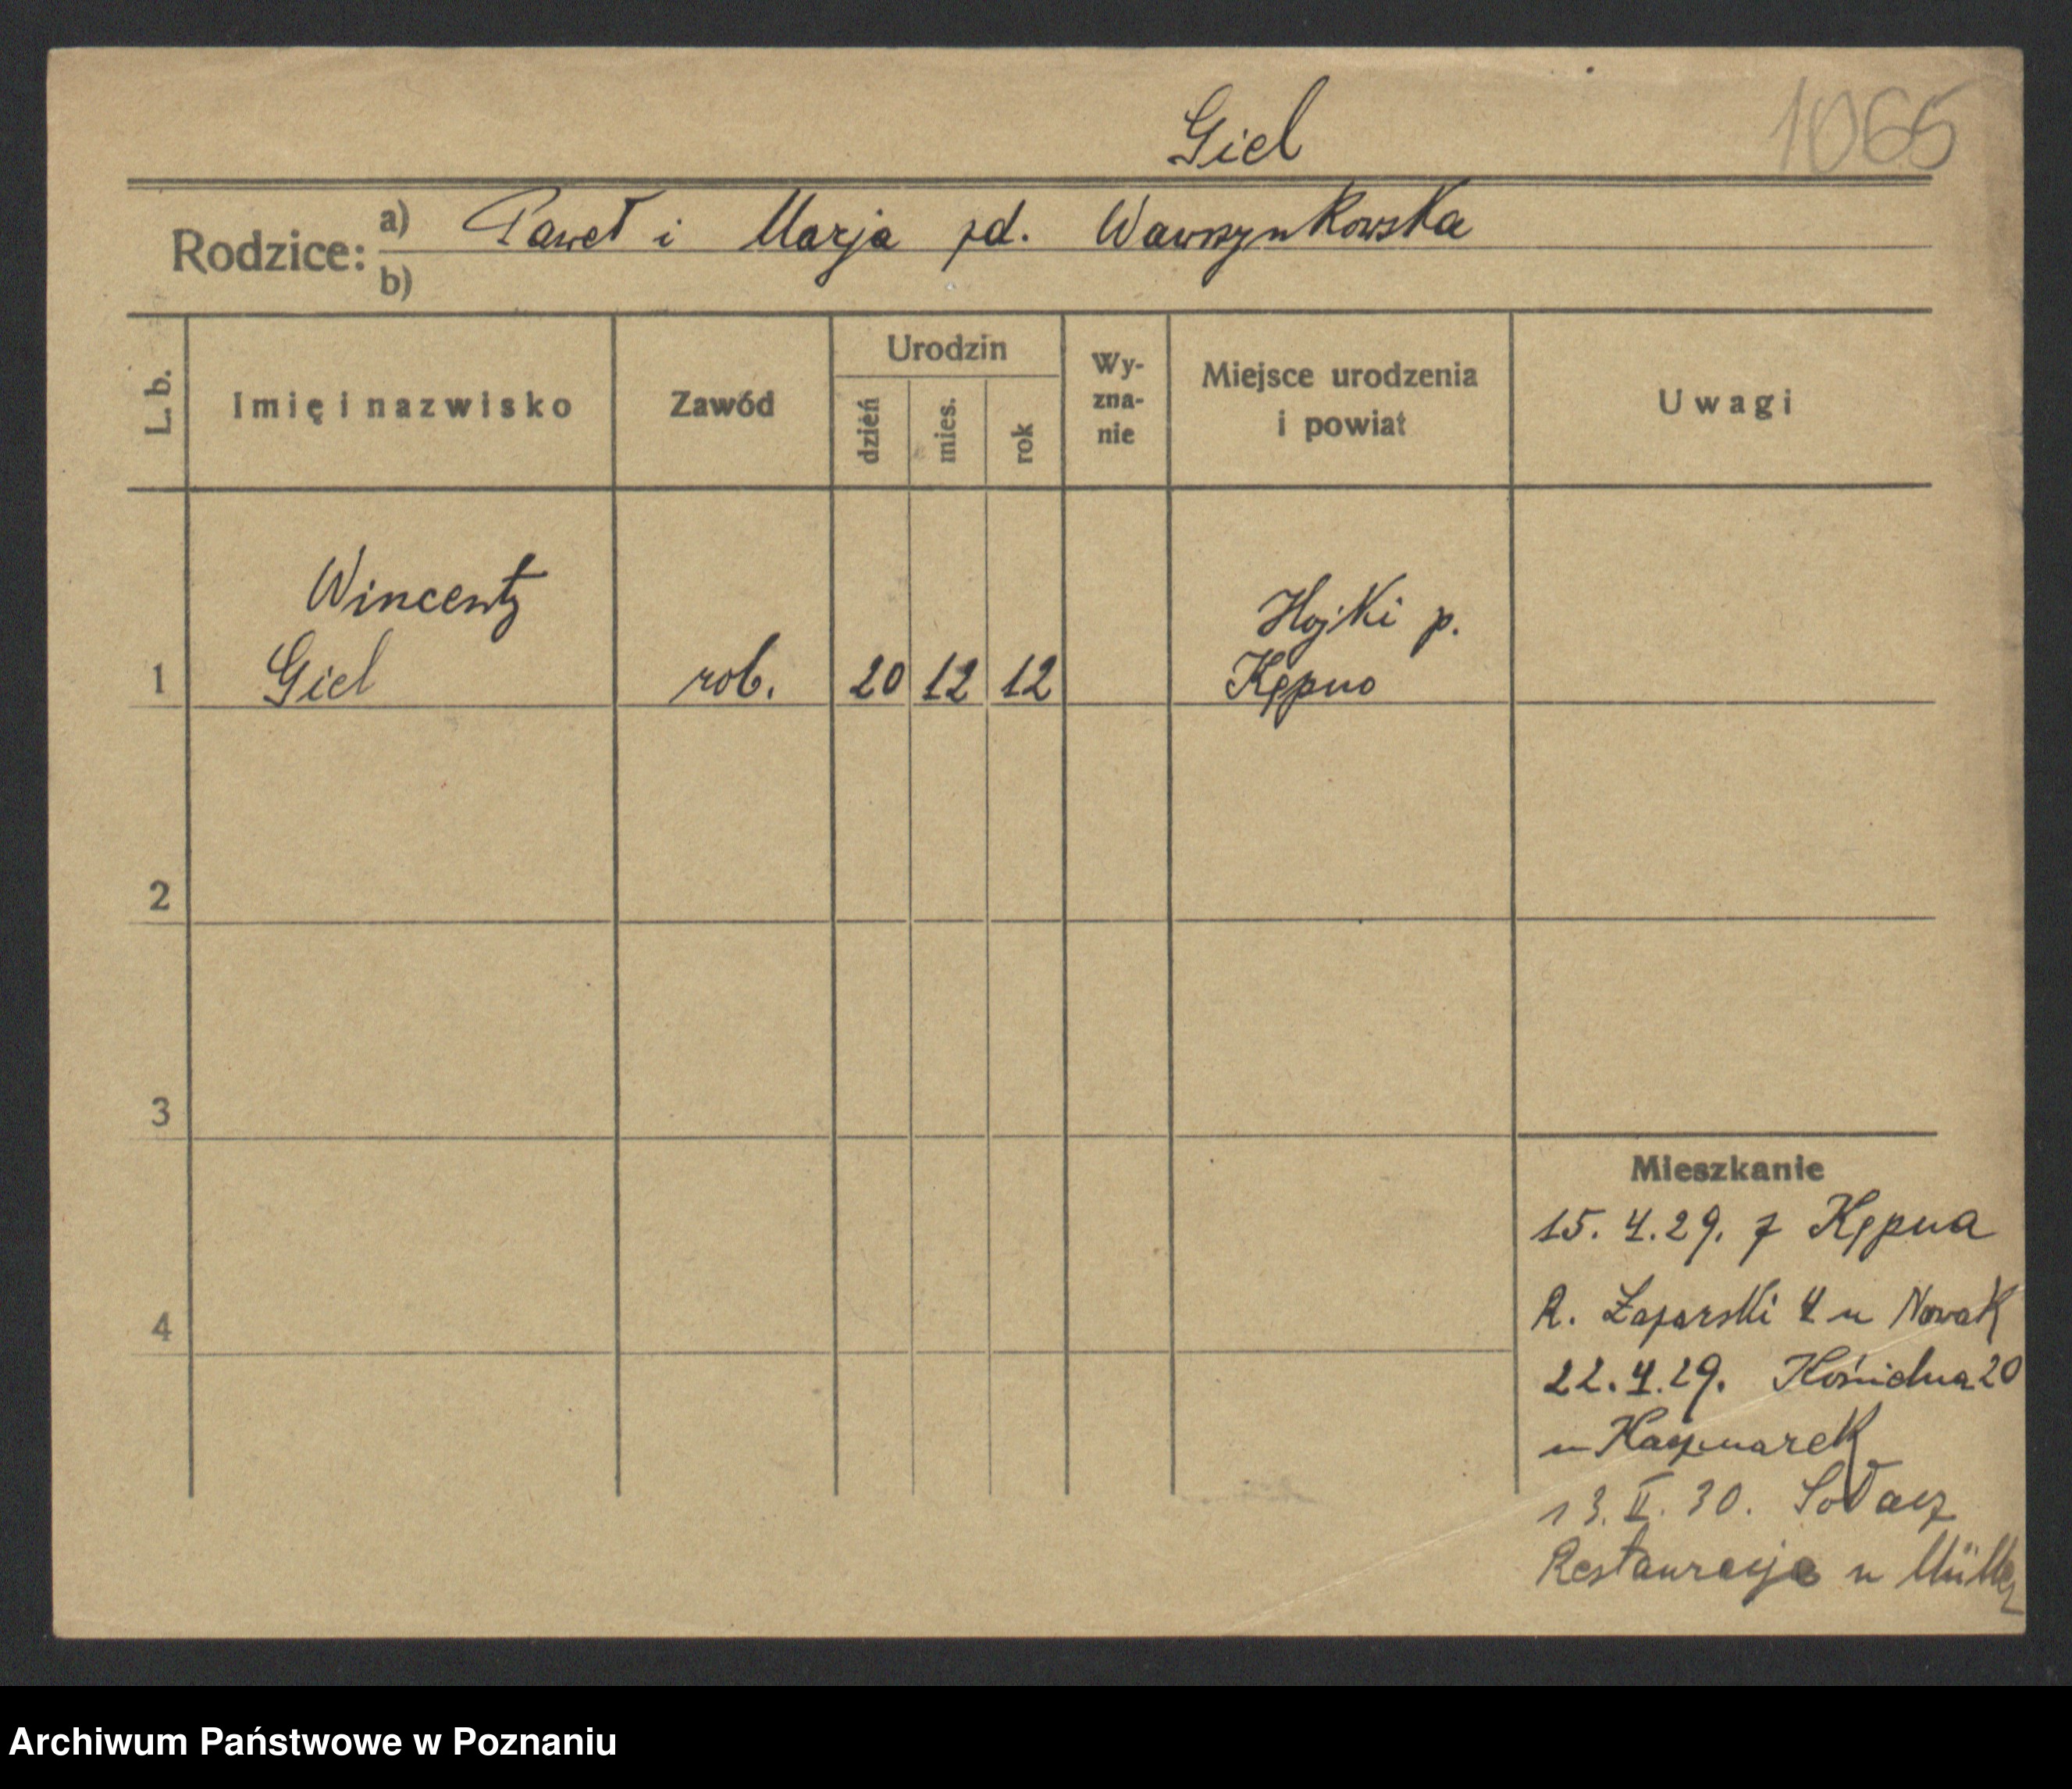 Giel
1065
Rodzice: a) Paweł i Marja zd. Wawrzynkowska
b)
L. b.
Imię i nazwisko
Zawód
Urodzin
dzień
mies.
rok
Wy-
zna-
nie
Miejsce urodzenia
i powiat
Uwagi
Wincenty
Hojki p.
1 Giel rob. 20 12 12 Kępno
2
3
4
Mieszkanie
15. 4. 29. z Kępna
R. Łazarski 4 u Nowak
22. 4. 29. 20
u Kaczmarek
13. II. 30. Sołacz
Restauracja u Müller
Archiwum Państwowe w Poznaniu